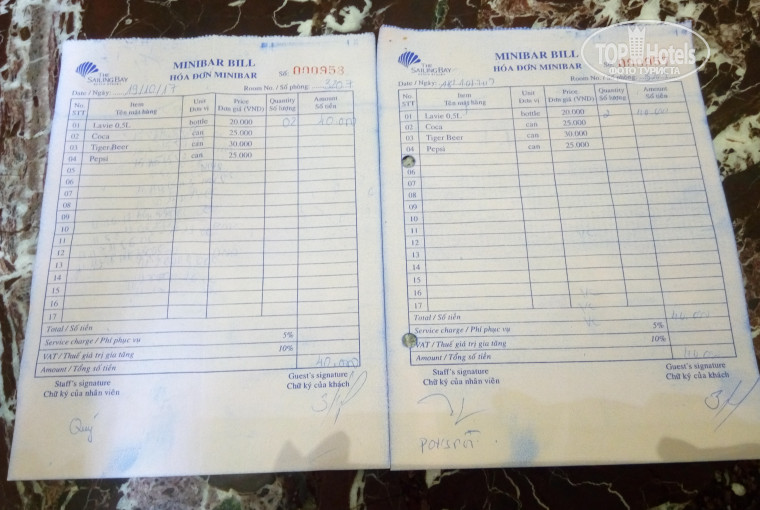 THE
SAILING BAY
MINIBAR BILL
HÓA ĐƠN MINIBAR
Số: 000953
Date / Ngày: 19/10/17
Room No. / Số phòng: 3207
No. STT
Item Tên mặt hàng
Unit Đơn vị
Price Đơn giá (VND)
Quantity Số lượng
Amount Số tiền
01 Lavie 0,5L bottle 20.000 02 40.000
02 Coca can 25.000
03 Tiger Beer can 30.000
04 Pepsi can 25.000
05
06
07
08
09
10
11
12
13
14
15
16
17
Total / Số tiền
Service charge / Phí phục vụ 5%
VAT / Thuế giá trị gia tăng 10%
Amount / Tổng số tiền 40.000
Staff's signature
Chữ ký của nhân viên
Guest's signature
Chữ ký của khách
Quý
THE
SAILING BAY
MINIBAR BILL
HÓA ĐƠN MINIBAR
Date / Ngày:
Room No. / Số phòng:
No. STT
Item Tên mặt hàng
Unit Đơn vị
Price Đơn giá (VND)
Quantity Số lượng
Amount Số tiền
01 Lavie 0,5L bottle 20.000 2
02 Coca can 25.000
03 Tiger Beer can 30.000
04 Pepsi can 25.000
06
07
08
09
10
11
12
13
14
15
16
17
Total / Số tiền
Service charge / Phí phục vụ 5%
VAT / Thuế giá trị gia tăng 10%
Amount / Tổng số tiền
Staff's signature
Chữ ký của nhân viên
Guest's signature
Chữ ký của khách
TOP Hotels
ФОТО ТУРИСТА